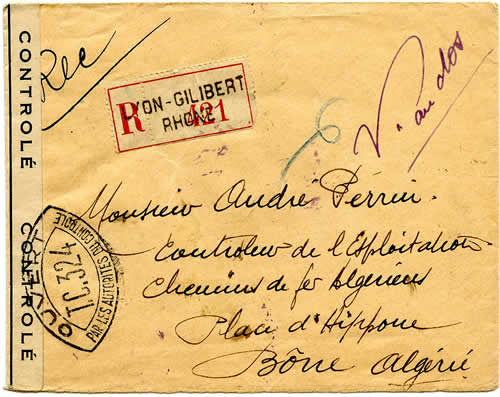 CONTROLÉ
CONTROLÉ
Rec
YON-GILIBERT
RHONE
R 421
6
V. au dos
OUVERT
T.C.324
PAR LES AUTORITÉS DU CONTROLE
Monsieur André Perrin.
Controleur de l'Exploitation
Chemins de fer Algériens
Place d'Hippone
Bône Algérie